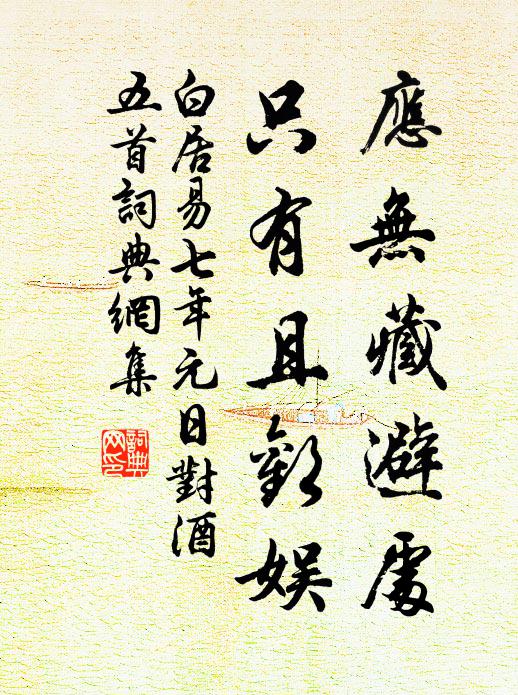 應無藏避處
只有且歡娛
白居易七年元日對酒
五首詞典網集
詞典网印